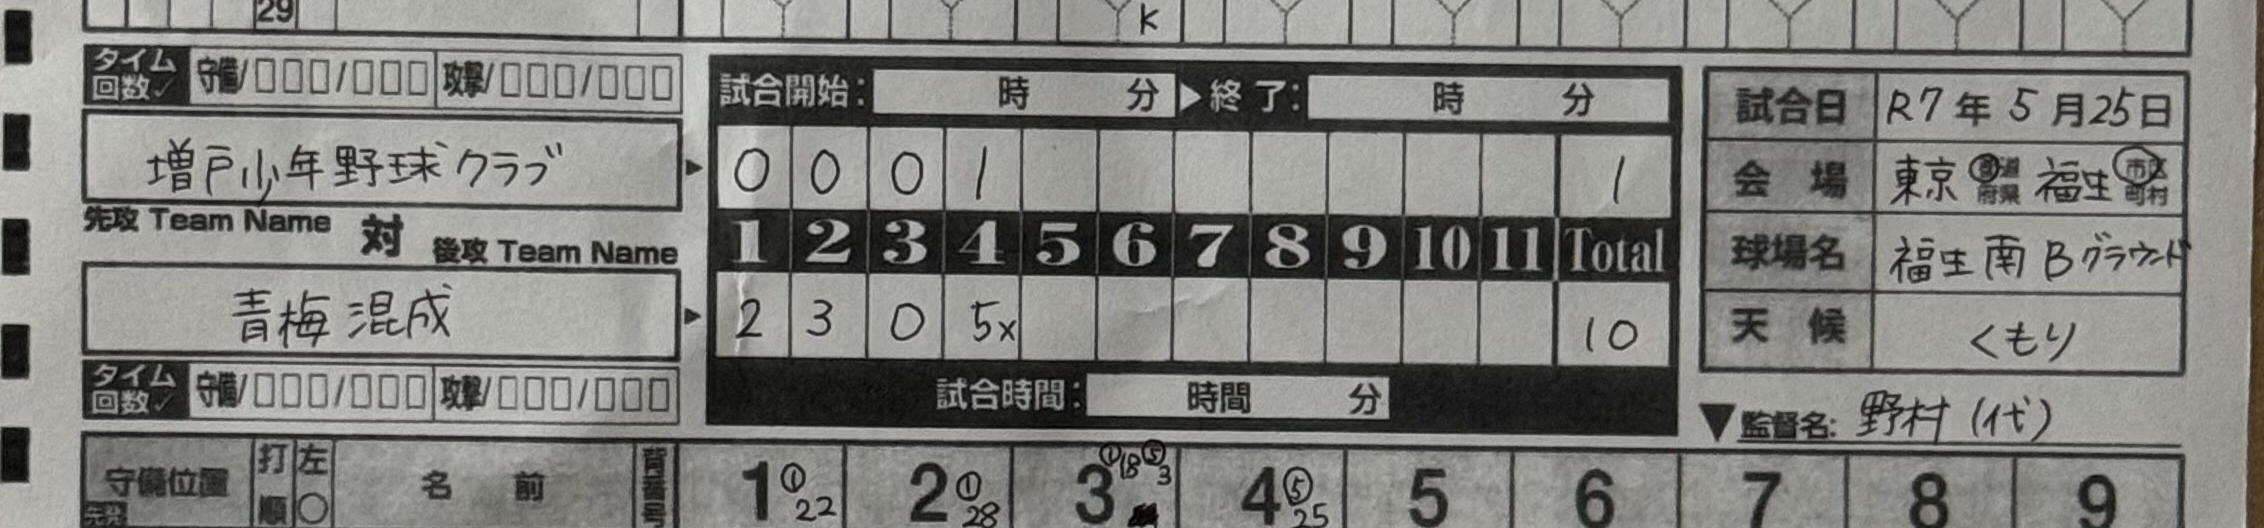 29
K
タイム回数✓ 守備/□□□/□□□ 攻撃/□□□/□□□
試合開始: 時 分▶終了: 時 分
増戸少年野球クラブ
0 0 0 1 1
先攻 Team Name 対 後攻 Team Name
1 2 3 4 5 6 7 8 9 10 11 Total
青梅混成
2 3 0 5x 10
タイム回数✓ 守備/□□□/□□□ 攻撃/□□□/□□□
試合時間: 時間 分
試合日 R7年5月25日
会場 東京都道府県 福生市区町村
球場名 福生南Bグラウンド
天候 くもり
▼監督名: 野村(代)
守備位置 先発 打順 左○ 名前 背番号 1 ①22 2 ①28 3 ①18 ⑤3 4 ⑤25 5 6 7 8 9